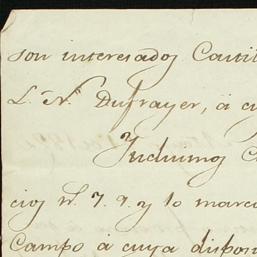 son interesados Cauti
L. N. Dufrayer, á cu
Incluimos C
cios nº. 7. 9. y 10 marc
Campo á cuya dispos